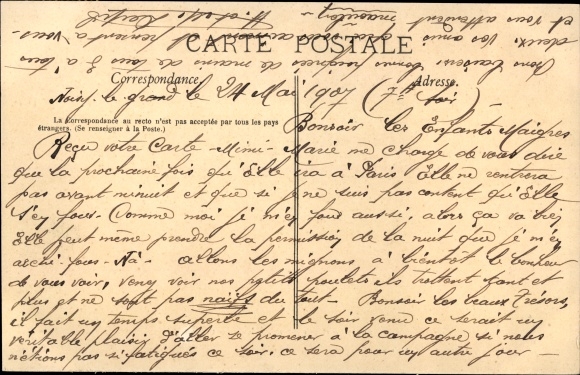 CARTE POSTALE
Correspondance.
Adresse.
La correspondance au recto n'est pas acceptée par tous les pays
étrangers. (Se renseigner à la Poste.)
Noisy-le-grand le 24 Mai 1907 (7h soir)
Bonsoir les Enfants Maigres
Reçu votre Carte - Mimi - Marie me charge de vous dire
que la prochaine fois qu'Elle ira à Paris Elle ne rentrera
pas avant minuit et que si je ne suis pas content qu'Elle
s'en fous - Comme moi je m'en fous aussi, alors ça va bien
Elle peut même prendre la permission de la nuit que je m'en
archi-fous - Na - allons les mignons à bientôt le bonheur
de vous voir, venez voir nos petits poulets ils trottent tant et
plus et ne sont pas naifs du tout - Bonsoir les beaux Trésors,
il fait un temps superbe et le soir venu ce serait un
véritable plaisir d'aller se promener à la campagne si nous
n'étions pas si fatigués ce soir, ce sera pour un autre jour -
bonne poignée de main de tous à tous
deux. Vos amis
et vous attendent